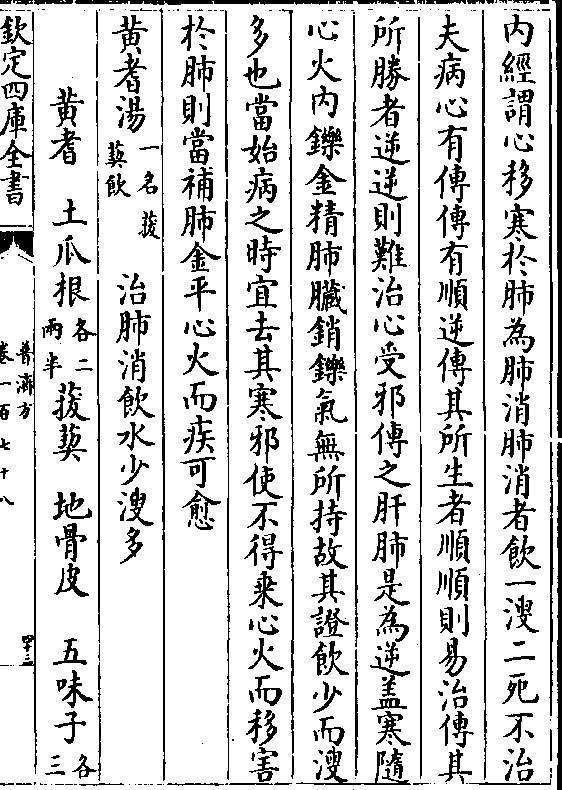 內經謂心移寒於肺為肺消肺消者飲一溲二死不治
夫病心有傳傳有順逆傳其所生者順順則易治傳其
所勝者逆逆則難治心受邪傳之肝肺是為逆盖寒隨
心火內鑠金精肺臟銷鑠氣無所持故其證飲少而溲
多也當始病之時宜去其寒邪使不得乗心火而移害
於肺則當補肺金平心火而疾可愈
黄耆湯一名菝葜飲 治肺消飲水少溲多
黄耆 土瓜根各二兩半 菝葜 地骨皮 五味子各三
欽定四庫全書
普濟方
卷一百七十八
四十三